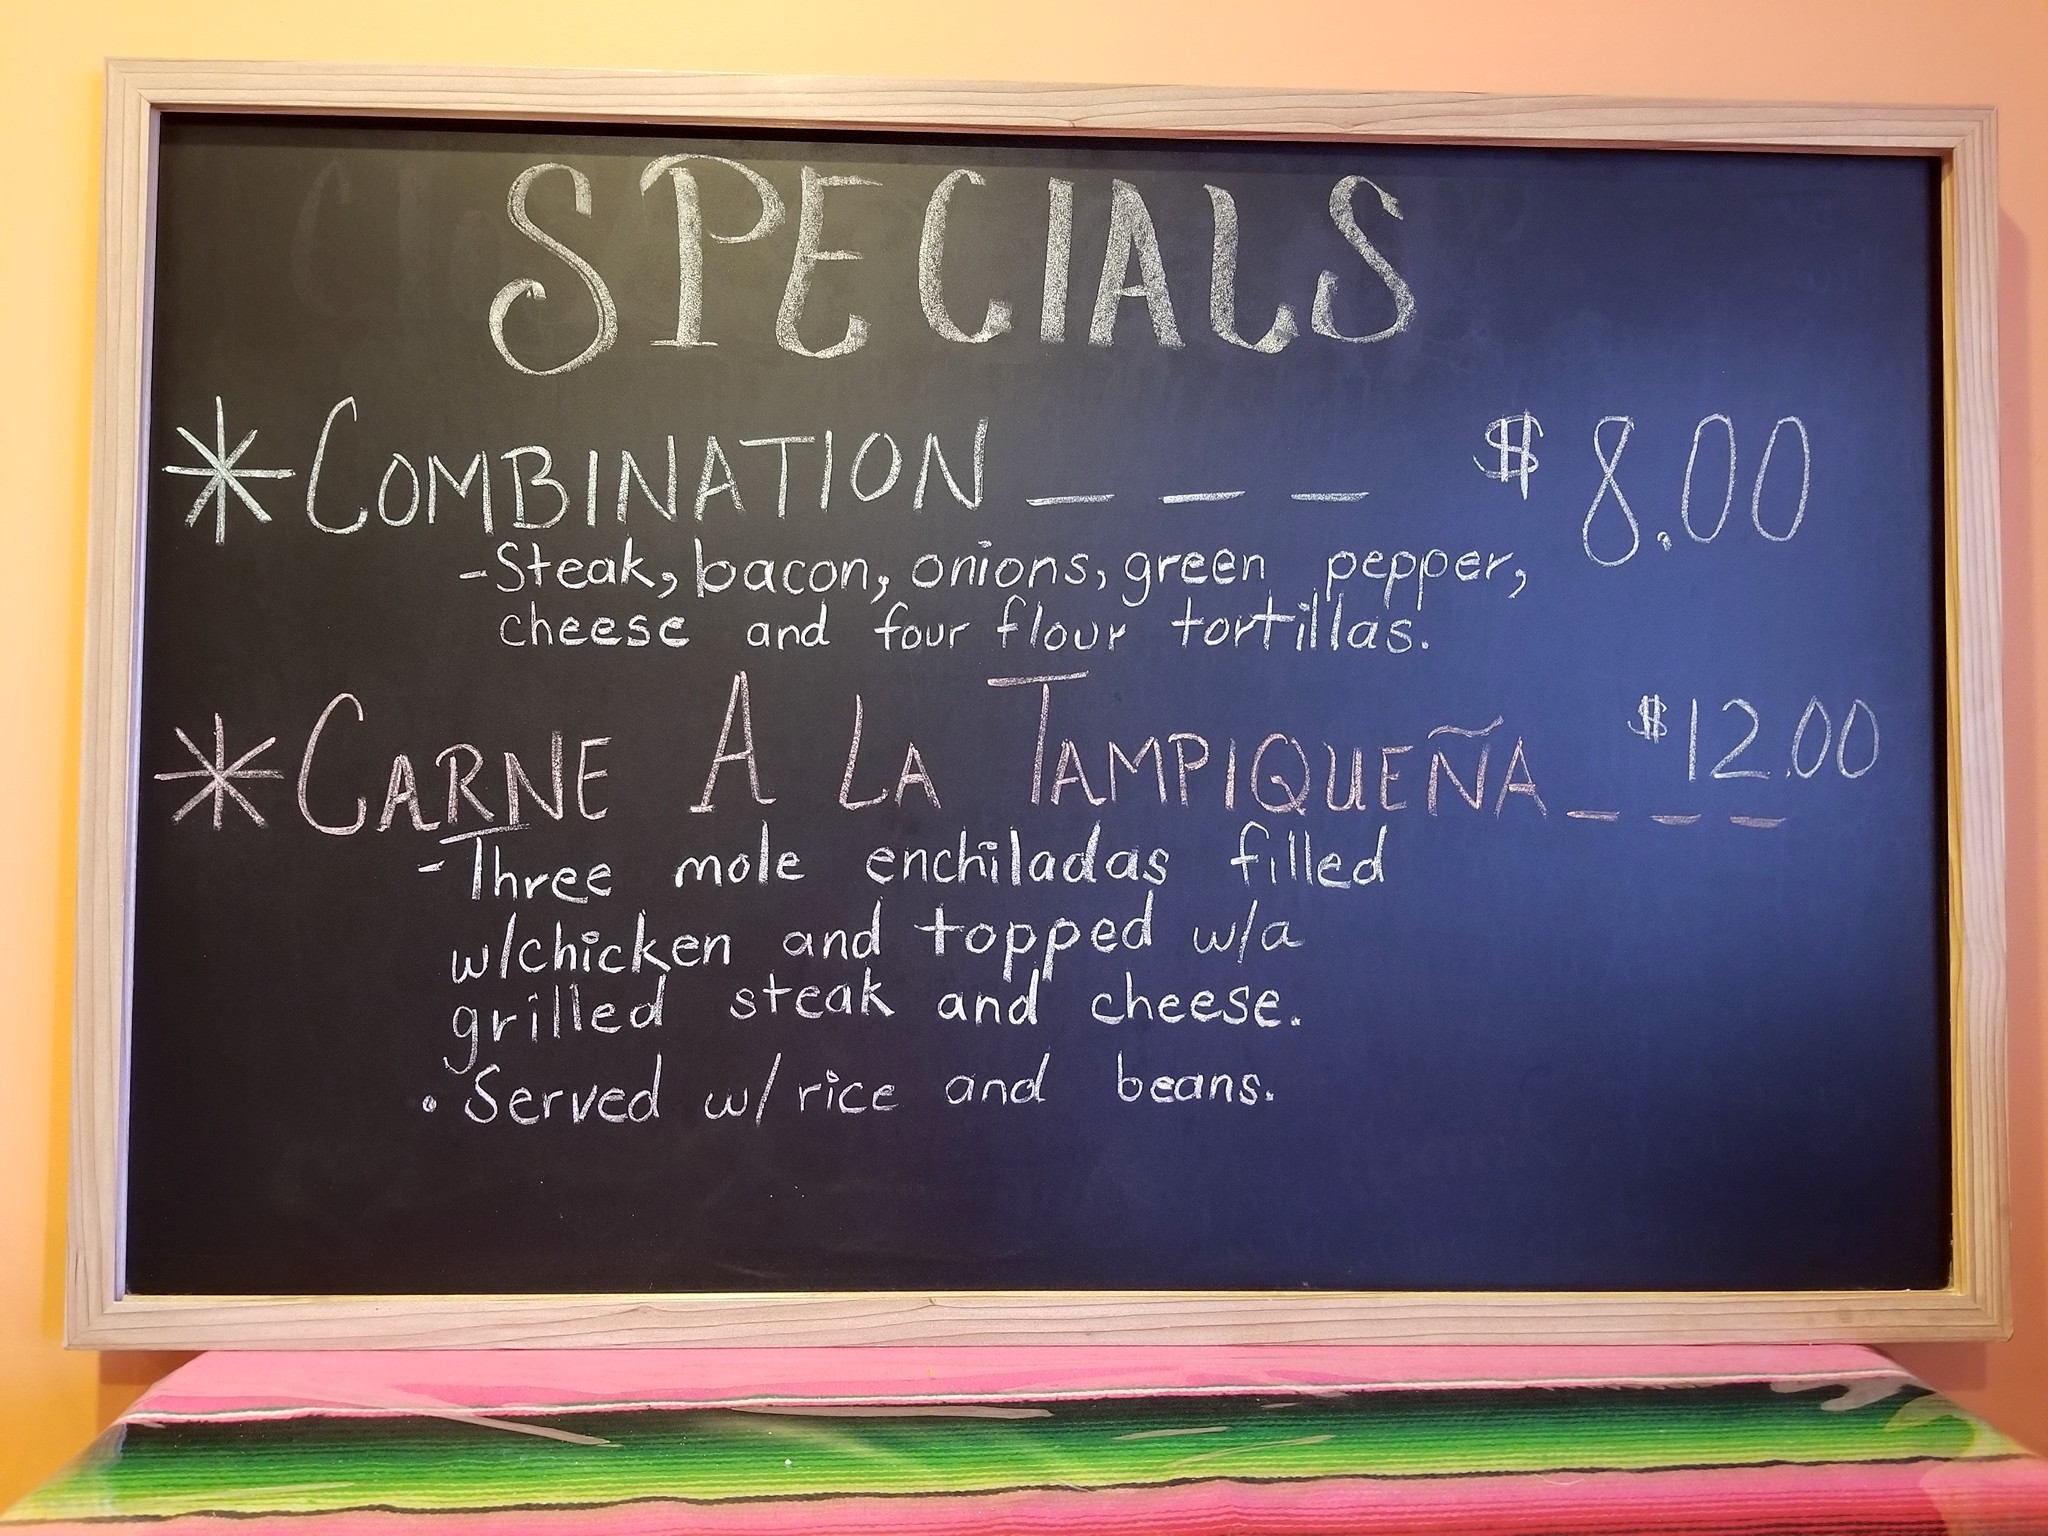 SPECIALS
* COMBINATION _ _ _ $8.00
-Steak, bacon, onions, green pepper,
cheese and four flour tortillas.
* CARNE A LA TAMPIQUEÑA _ _ _ $12.00
-Three mole enchiladas filled
w/chicken and topped w/a
grilled steak and cheese.
• Served w/ rice and beans.